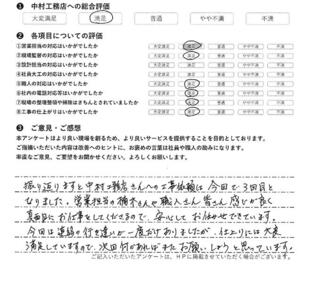 ❶ 中村工務店への総合評価
大変満足 満足 普通 やや不満 不満
❷ 各項目についての評価
①営業担当の対応はいかがでしたか 大変満足 満足 普通 やや不満 不満
②現場監督の対応はいかがでしたか 大変満足 満足 普通 やや不満 不満
③設計担当の対応はいかがでしたか 大変満足 満足 普通 やや不満 不満
④社員大工の対応はいかがでしたか 大変満足 満足 普通 やや不満 不満
⑤職人の対応はいかがでしたか 大変満足 満足 普通 やや不満 不満
⑥社内の電話対応等はいかがでしたか 大変満足 満足 普通 やや不満 不満
⑦現場の整理整頓や掃除はきちんとされていましたか 大変満足 満足 普通 やや不満 不満
⑧工事の仕上がりはいかがでしたか 大変満足 満足 普通 やや不満 不満
❸ ご意見・ご感想
本アンケートはより良い現場を創るため、より良いサービスを提供することを目的としております。
ご指摘いただいた内容は改善のヒントに、お褒めの言葉は社員や職人の励みになります。
率直なご意見、ご要望をお聞かせください。よろしくお願いします。
振り返りますと中村工務店さんへの工事依頼は今回で3回目と
なりました。営業担当の橋本さんや職人さん皆さん感じが良く
真面目にお仕事をしてくださるので、安心してお任せできています。
今回は連絡の行き違いが一度だけありましたが、仕上りには大変
満足していますので、次回何かあればまたお願いしようと思っています。
ご記入いただきましたアンケートは、HPに掲載させていただく場合がございます。